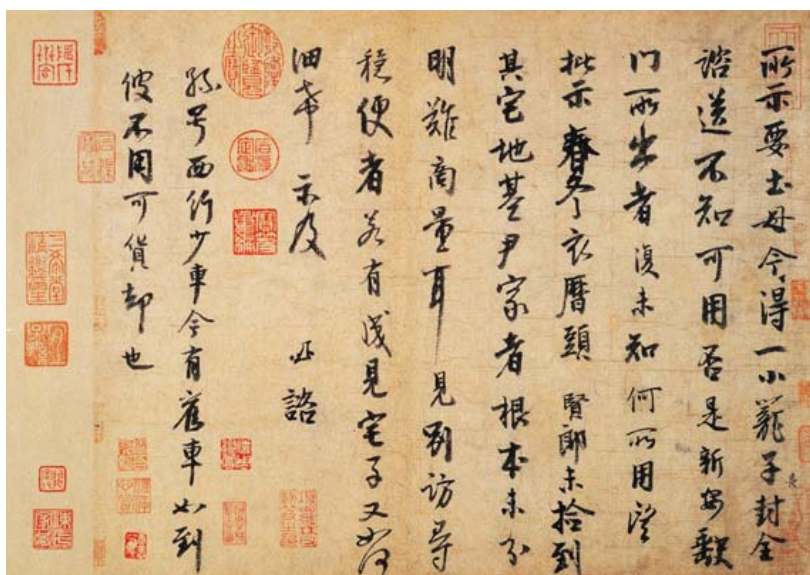 所示要土母今得一小籠子封全
諮送不知可用否是新安缺
門所出者復未知何所用望
批示春冬衣曆頭賢郎未撿到
其宅地基尹家者根本未分
明難商量耳見別訪尋
穩便者若有成見宅子又如何
細希示及 諮
孫号西行少車今有舊車如到
彼不用可貨却也